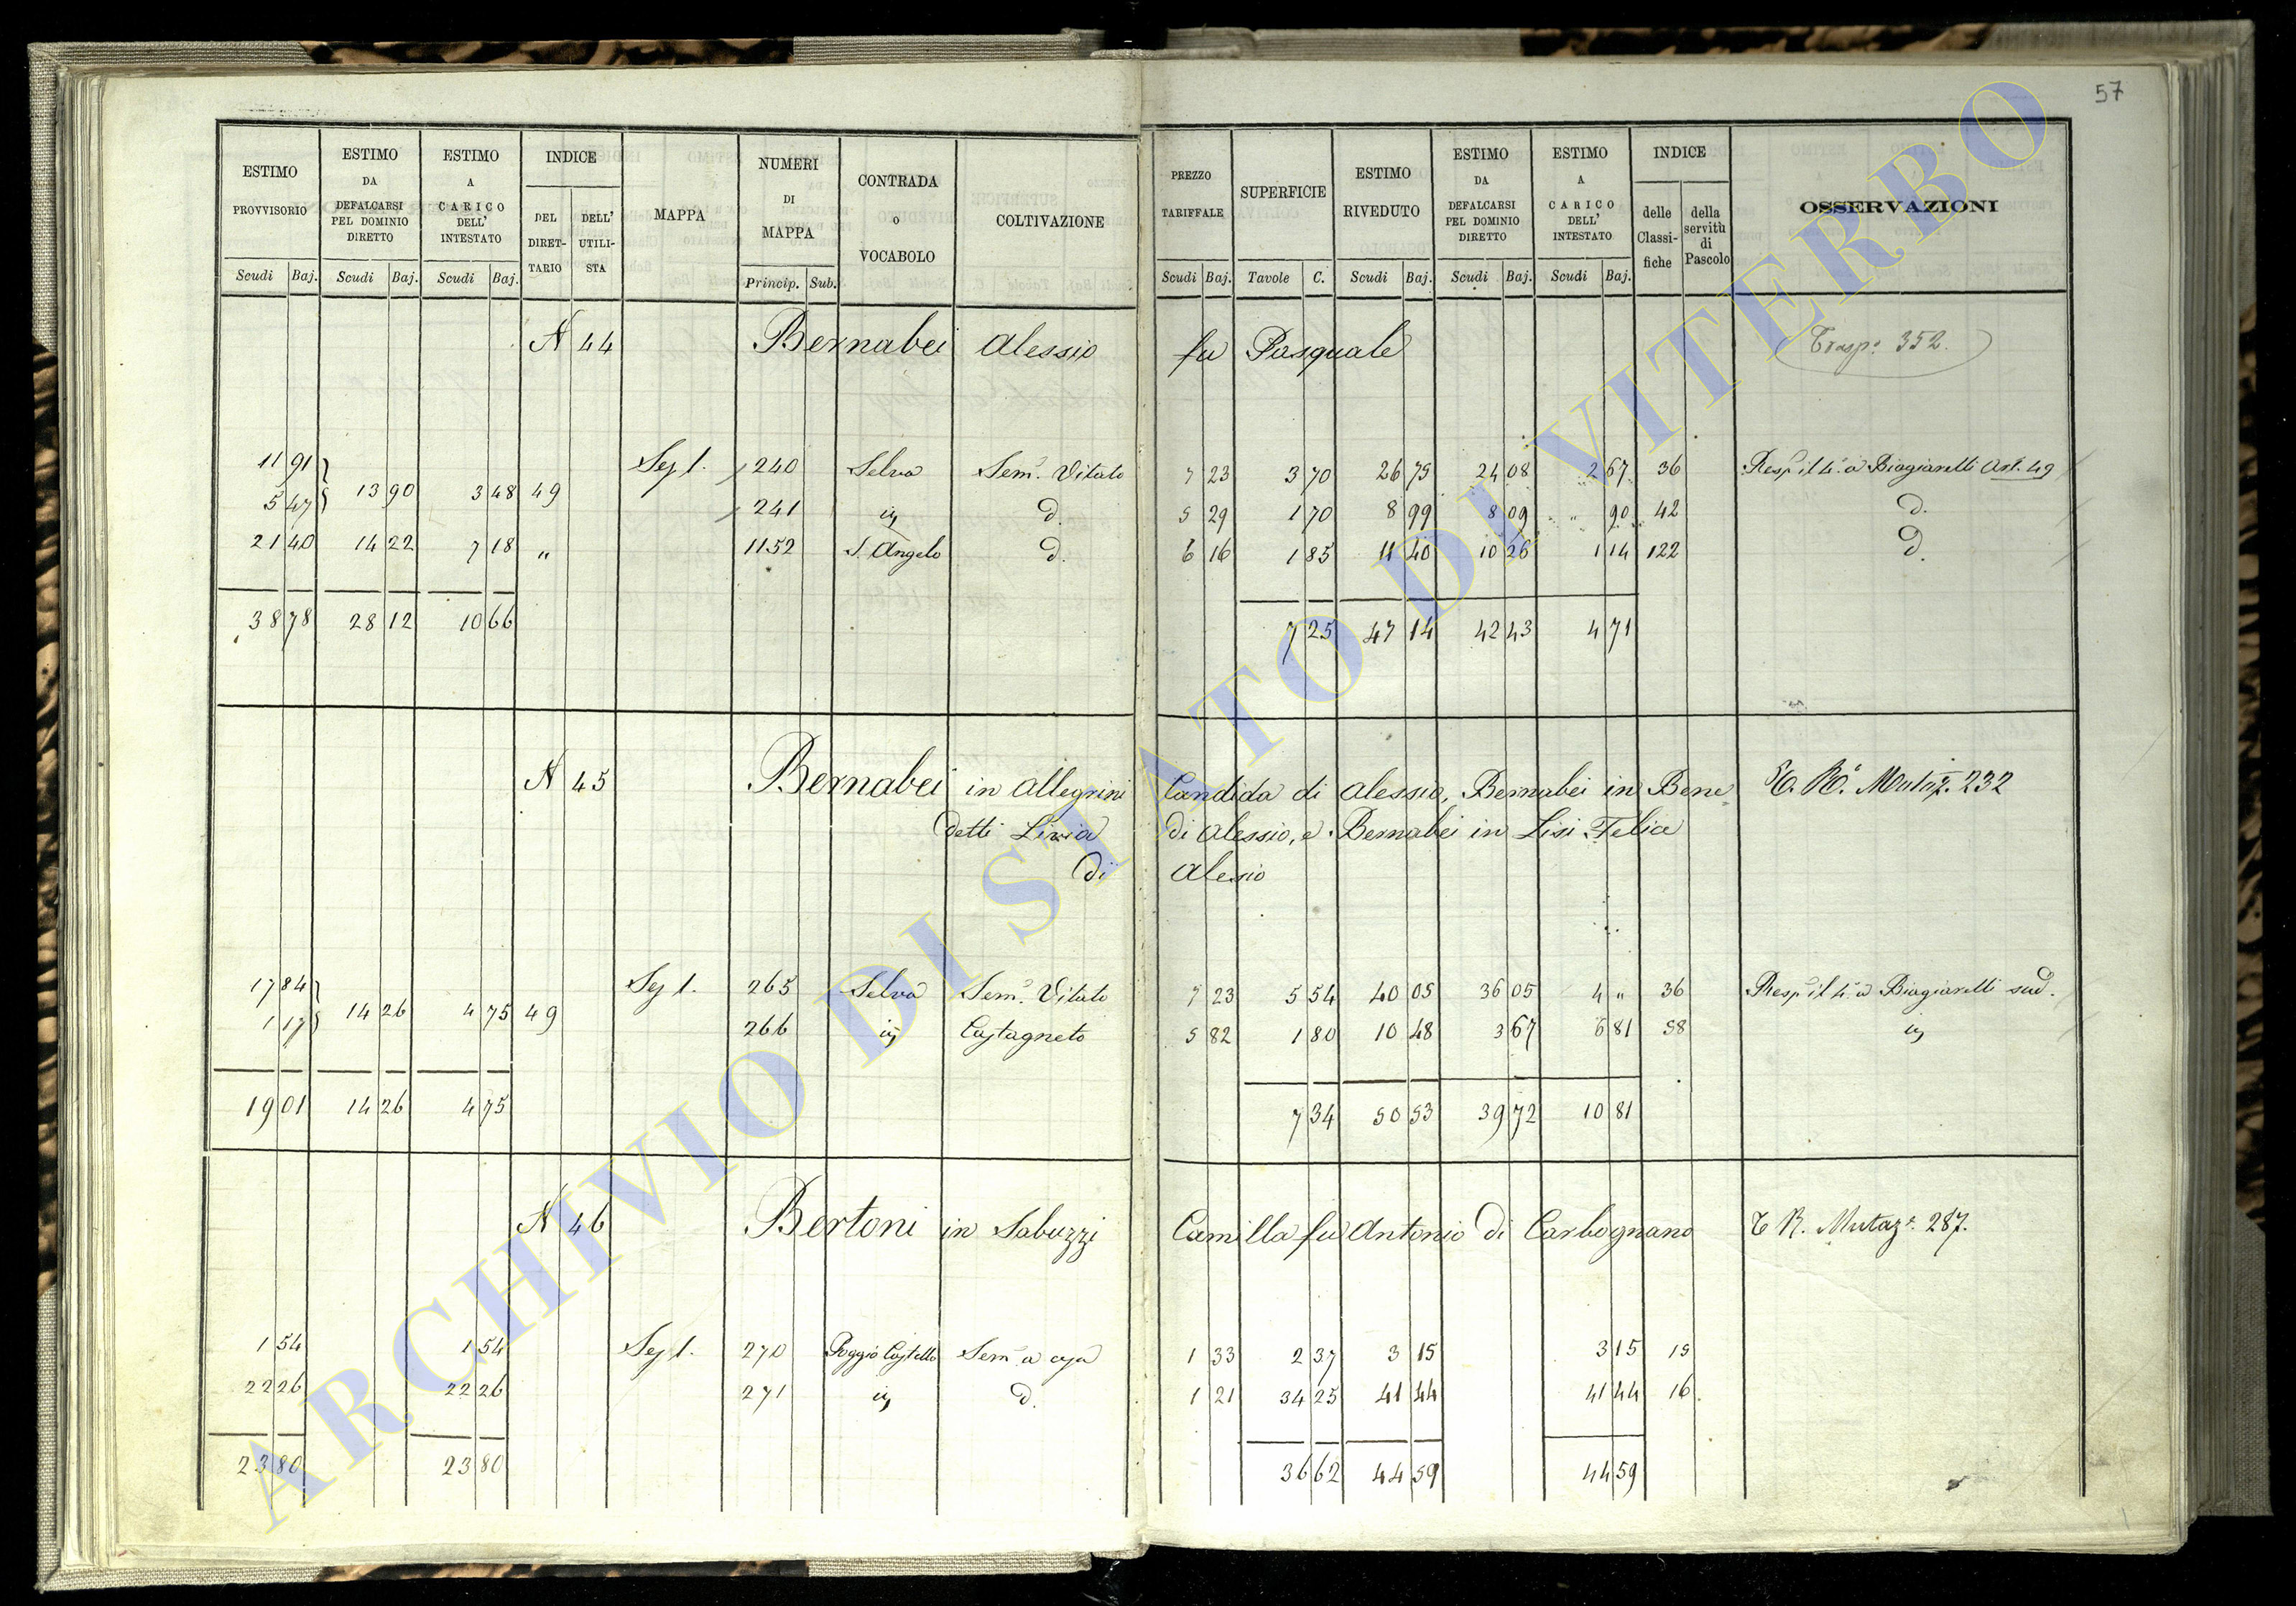 57
ESTIMO PROVVISORIO Scudi Baj. | ESTIMO DA DEFALCARSI PEL DOMINIO DIRETTO Scudi Baj. | ESTIMO A CARICO DELL' INTESTATO Scudi Baj. | INDICE DEL DIRET-TARIO DELL' UTILI-STA | MAPPA | NUMERI DI MAPPA Princip. Sub. | CONTRADA O VOCABOLO | COLTIVAZIONE | PREZZO TARIFFALE Scudi Baj. | SUPERFICIE Tavole C. | ESTIMO RIVEDUTO Scudi Baj. | ESTIMO DA DEFALCARSI PEL DOMINIO DIRETTO Scudi Baj. | ESTIMO A CARICO DELL' INTESTATO Scudi Baj. | INDICE delle Classi-fiche della servitù di Pascolo | OSSERVAZIONI
N 44 Bernabei Alessio fu Pasquale Trasp. 352.
11 91 Sez 1. 240 Selva Sem.o Vitato 7 23 3 70 26 75 24 08 2 67 36 Resp. il 4.o a Biagiarelli Art. 49
5 47 13 90 3 48 49 241 id. d. 5 29 1 70 8 99 8 09 " 90 42 d.
21 40 14 22 7 18 " 1152 S. Angelo d. 6 16 1 85 11 40 10 26 1 14 122 d.
38 78 28 12 10 66 7 25 47 14 42 43 4 71
N 45 Bernabei in Allegrini Candida di Alessio, Bernabei in Bene Mutaz. 232
detti Livia di Alessio, e Bernabei in Lisi Felice
di Alesio
17 84 Sez 1. 265 Selva Sem.o Vitato 7 23 5 54 40 05 36 05 4 " 36 Resp. il 4.o a Biagiarelli sud.
1 17 14 26 4 75 49 266 id. Castagneto 5 82 1 80 10 48 3 67 6 81 58 id.
19 01 14 26 4 75 7 34 50 53 39 72 10 81
N 46 Bertoni in Sabuzzi Camilla fu Antonio di Carbognano T R. Mutaz. 287.
1 54 1 54 Sez 1. 270 Poggio Castello Sem.o a 1 33 2 37 3 15 3 15 15
22 26 22 26 271 id. d. 1 21 34 25 41 44 41 44 16
23 80 23 80 36 62 44 59 44 59
ARCHIVIO DI STATO DI VITERBO